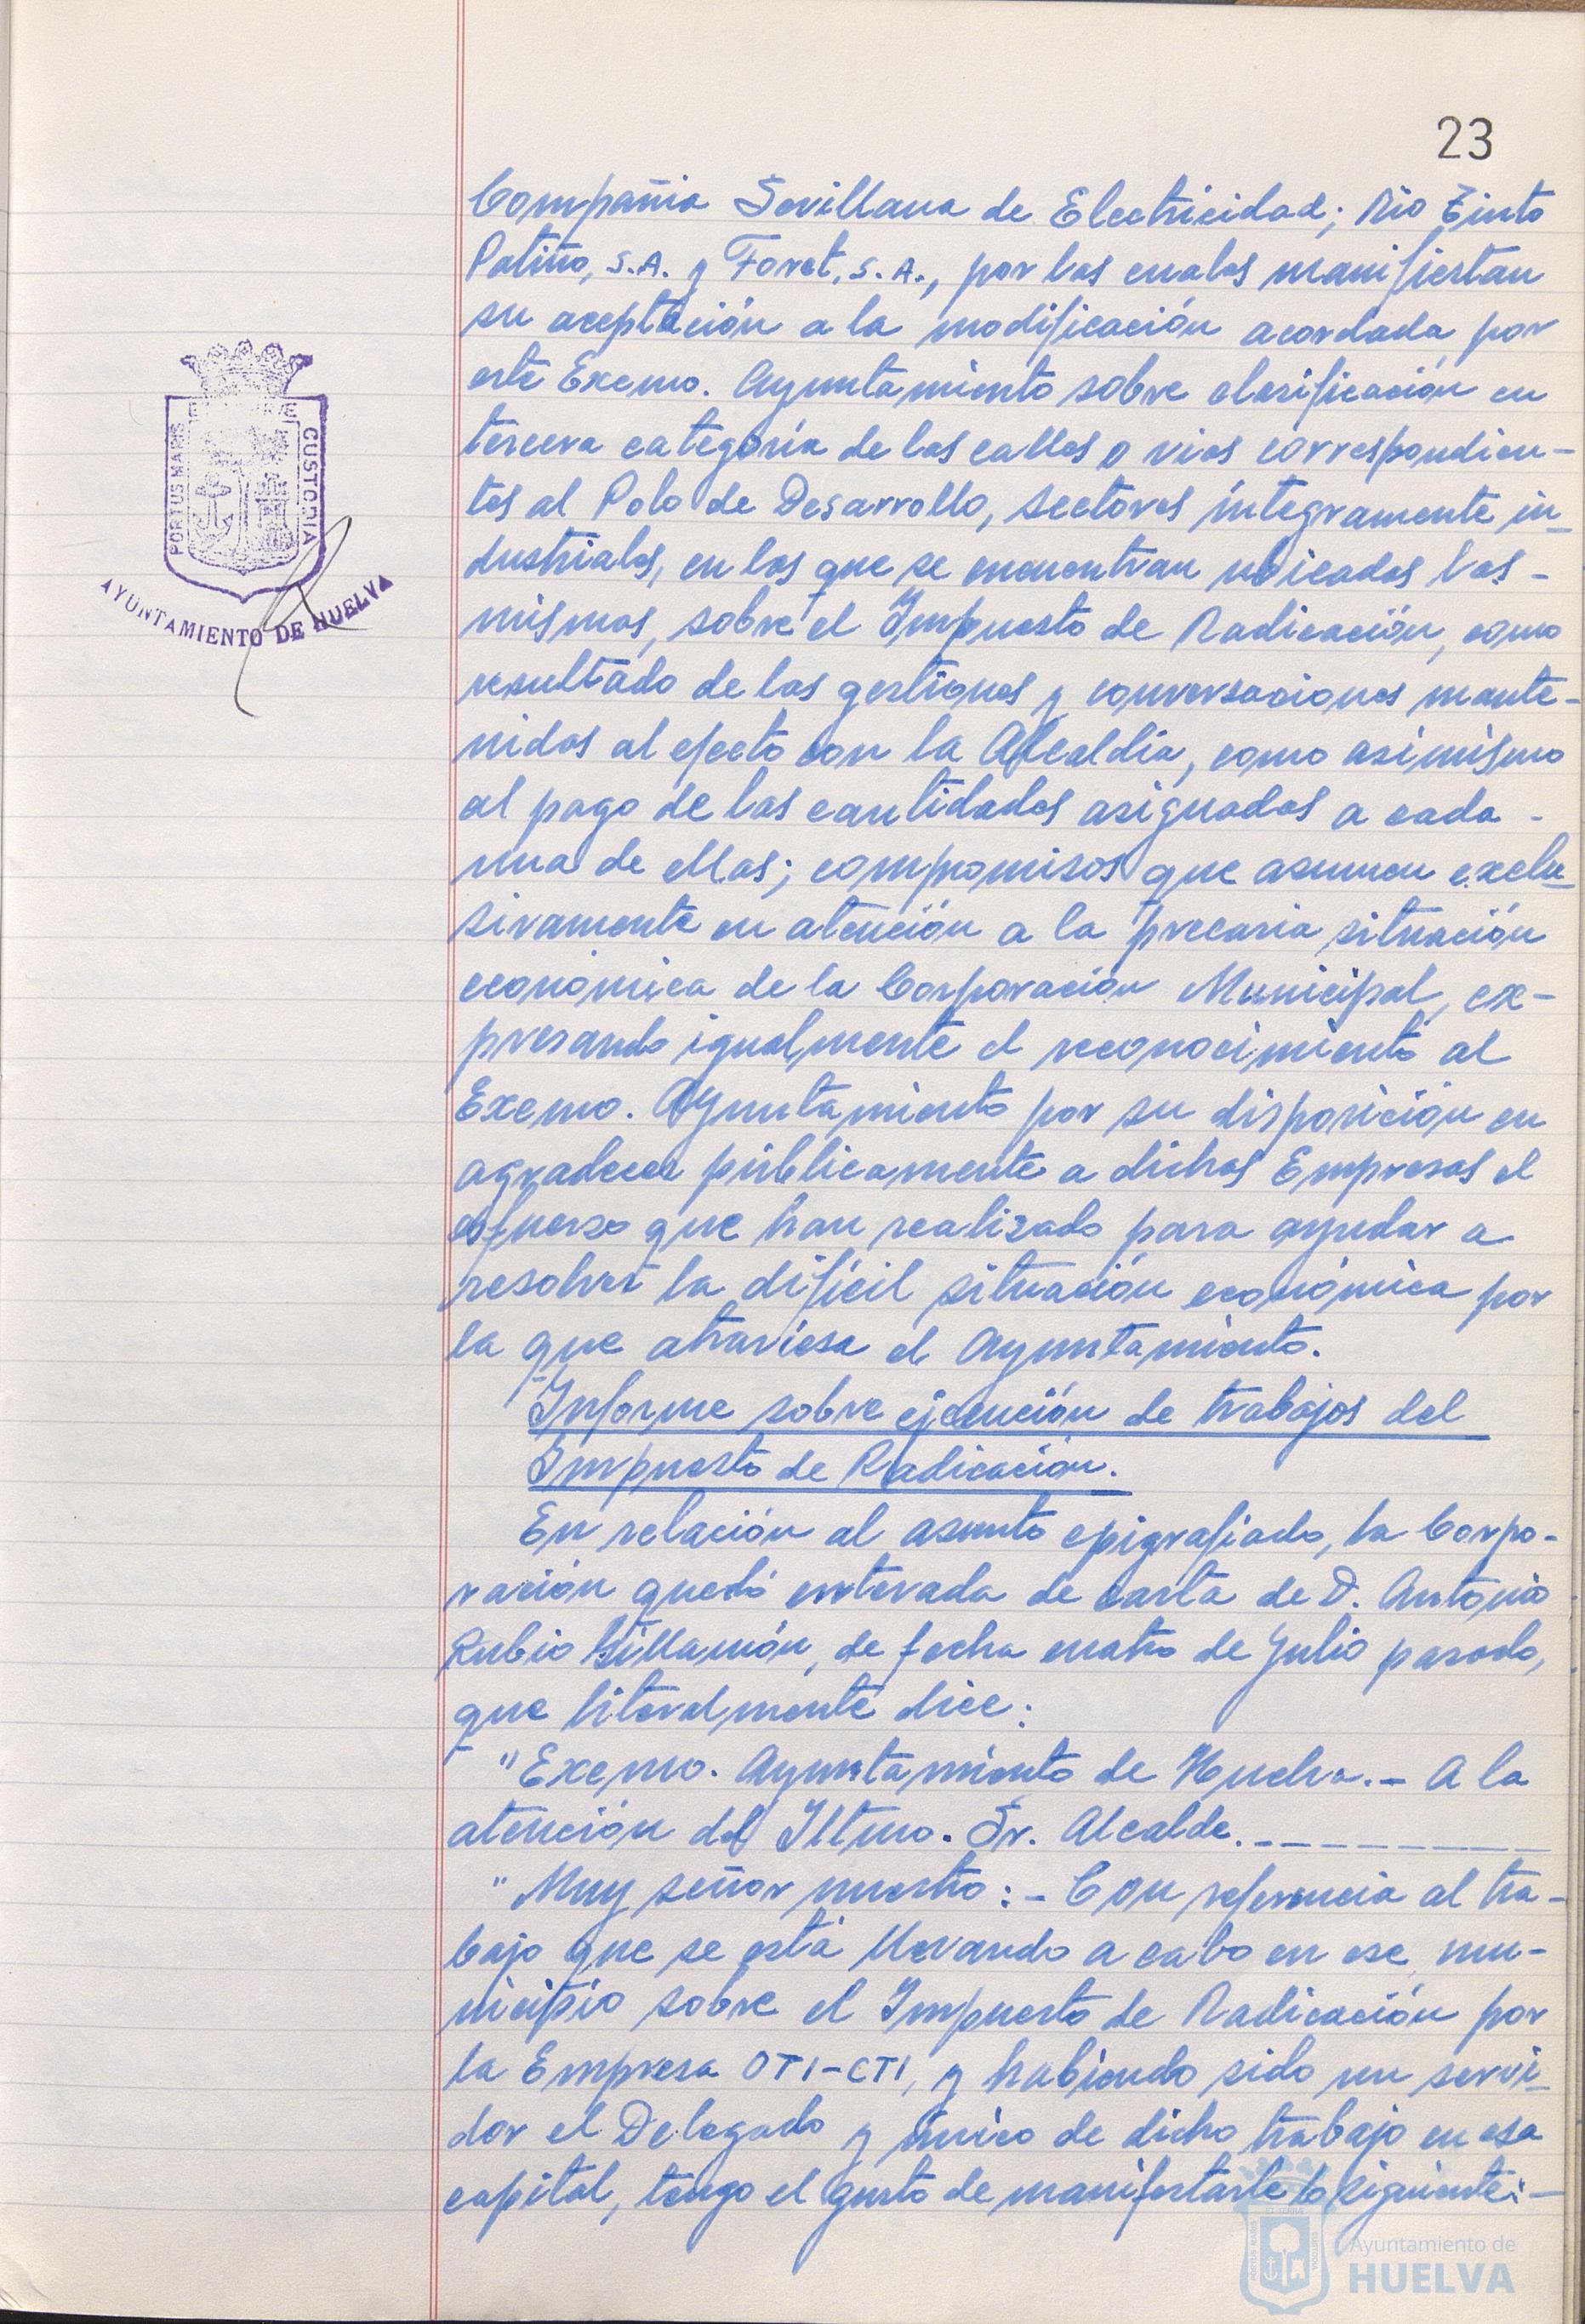 23
Compañia Sevillana de Electricidad; Rio Tinto
Patiño, S.A. y Foret, S.A., por las cuales manifiestan
su aceptación a la modificación acordada por
este Excmo. Ayuntamiento sobre clasificación en
tercera categoría de las calles o vias correspondien-
tes al Polo de Desarrollo, sectores integramente in-
dustriales, en los que se encuentran ubicadas las-
mismas, sobre el Impuesto de Radicación, como
resultado de las gestiones y conversaciones mante-
nidas al efecto con la Alcaldía, como asimismo
al pago de las cantidades asignadas a cada-
una de ellas; compromisos que asumen exclu-
sivamente en atención a la precaria situación
económica de la Corporación Municipal, ex-
presando igualmente el reconocimiento al
Excmo. Ayuntamiento por su disposición en
agradecer públicamente a dichas Empresas el
esfuerzo que han realizado para ayudar a
resolver la difícil situación económica por
la que atraviesa el Ayuntamiento.
Informe sobre ejecución de trabajos del
Impuesto de Radicación.
En relación al asunto epigrafiado, la Corpo-
ración quedó enterada de carta de D. Antonio
Rubio Villamón, de fecha cuatro de Julio pasado,
que literalmente dice:
"Excmo. Ayuntamiento de Huelva.- A la
atención del Iltmo. Sr. Alcalde.---------
"Muy señor nuestro:- Con referencia al tra-
bajo que se está llevando a cabo en ese mu-
nicipio sobre el Impuesto de Radicación por
la Empresa OTI-CTI, y habiendo sido un servi-
dor el Delegado y único de dicho trabajo en esa
capital, tengo el gusto de manifestarle lo siguiente:-
PORTUS MARIS
CUSTODIA
AYUNTAMIENTO DE HUELVA
Ayuntamiento de
HUELVA